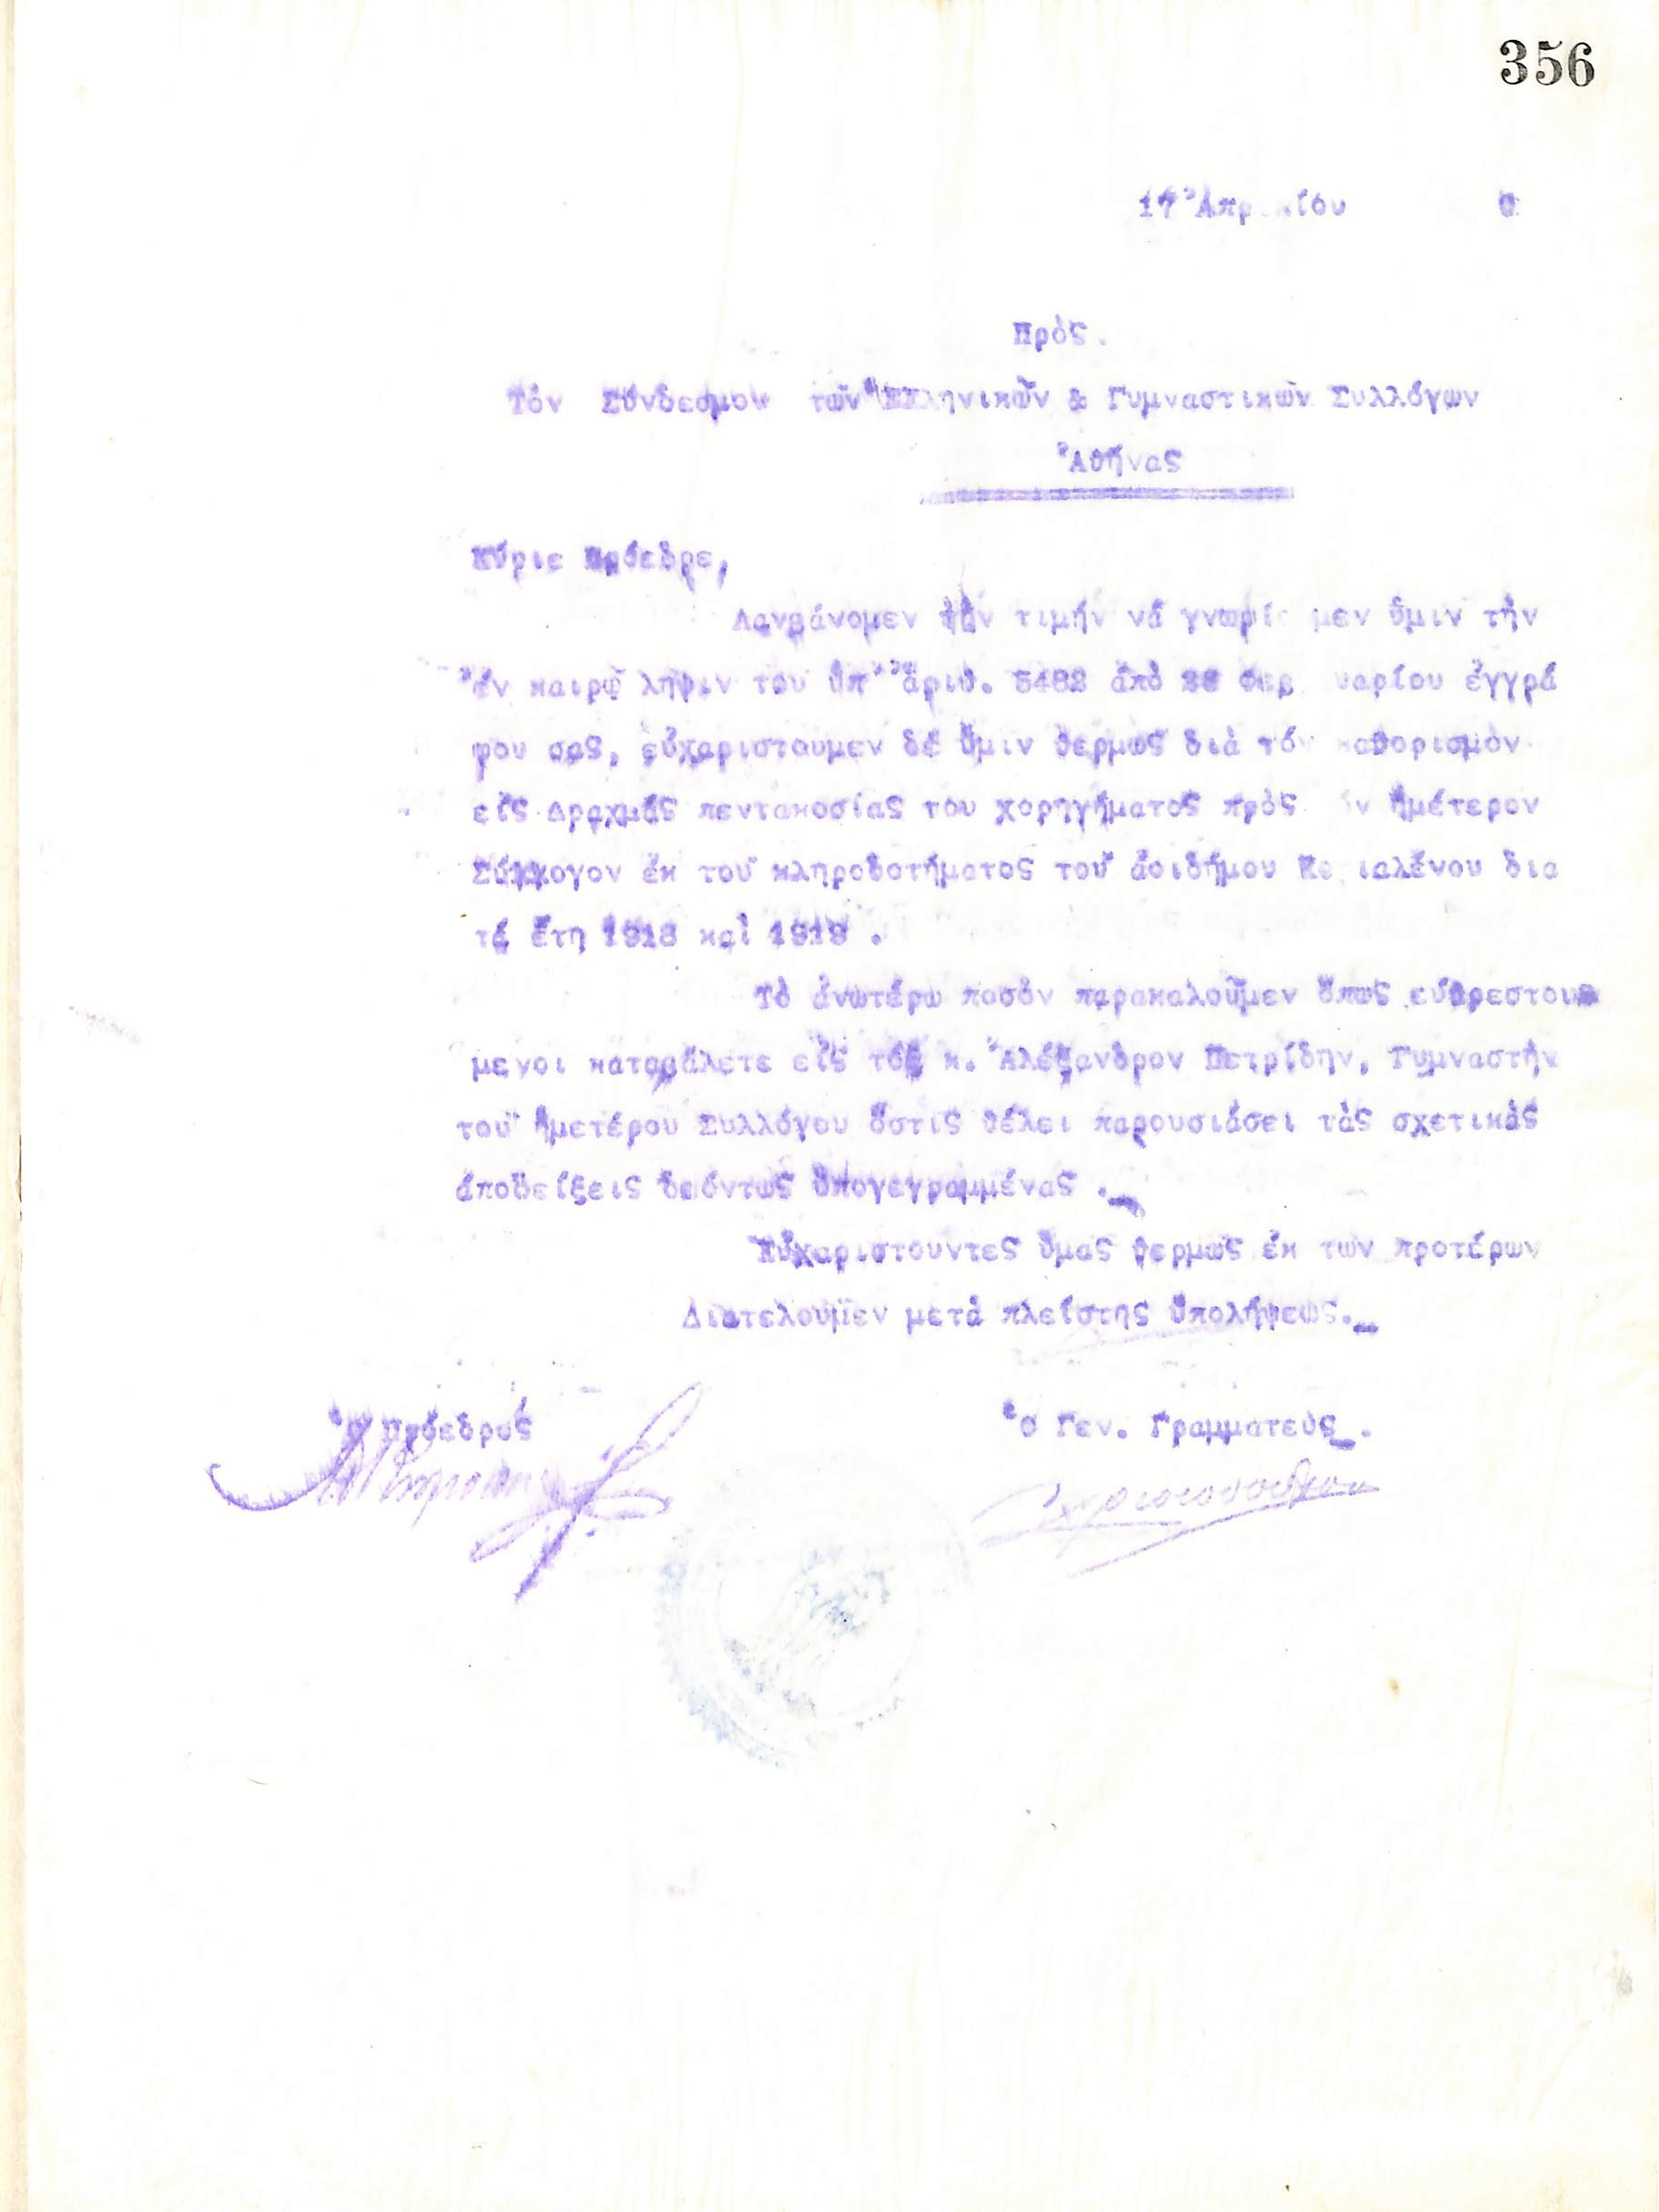 356
17 Ἀπριλίου
Πρός.
Τόν Σύνδεσμον τῶν Ἑλληνικῶν & Γυμναστικῶν Συλλόγων
Ἀθήνας
Κύριε Πρόεδρε,
Λανβάνομεν τὴν τιμήν νά γνωρίσωμεν ὕμιν τὴν
ἐν καιρῷ λήψιν του ὑπ' ἄριθ. 5482 ἀπὸ Φεβρουαρίου ἐγγρά
φου σας, εὐχαριστουμεν δέ ὕμιν θερμῶς διὰ τόν καθορισμὸν
εἰς Δραχμάς πεντακοσίας του χορηγήματος πρὸς τόν ἡμέτερον
Σύλλογον ἐκ τοῦ κληροδοτήματος τοῦ ἀοιδήμου δια
τά ἔτη 1918 καὶ 1919 .
Τὸ ἀνωτέρω ποσὸν παρακαλοῦμεν ὅπως εὐαρεστου
μενοι καταβάλετε εἰς τὸν κ. Ἀλέξανδρον Πετρίδην, Γυμναστὴν
τοῦ ἡμετέρου Συλλόγου ὅστις θέλει παρουσιάσει τὰς σχετικὰς
ἀποδείξεις δεόντως ὑπογεγραμμένας .-
Εὐχαριστουντες ὕμας θερμῶς ἐκ των προτέρων
Διατελοῦμεν μετὰ πλείστης ὑπολήψεως.-
Ὁ Πρόεδρος
Ὁ Γεν. Γραμματεὺς.